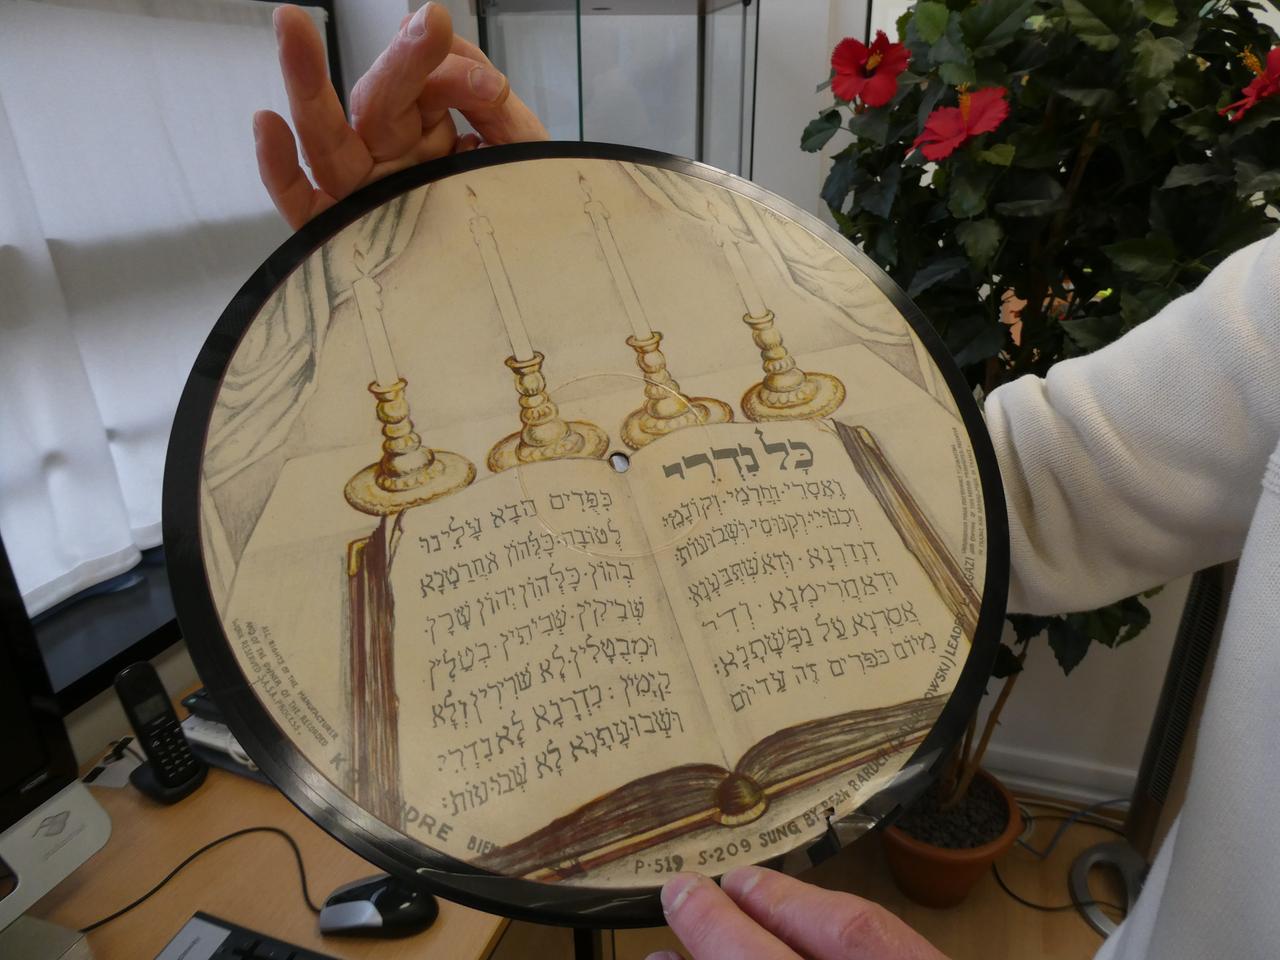 כָּל נִדְרֵי
וֶאֱסָרֵי·וַחֲרָמֵי·וְקוֹנָמֵי·
וְכִנּוּיֵי·וְקִנּוּסֵי·וּשְׁבוּעוֹת·
דִנְדַרְנָא · וּדְאִשְׁתַּבַּעְנָא
וּדְאַחֲרִימְנָא · וְדִי־
אֲסַרְנָא עַל נַפְשָׁתָנָא:
מִיּוֹם כִּפֻּרִים זֶה עַד יוֹם
כִּפֻּרִים הַבָּא עָלֵינוּ
לְטוֹבָה·כָּלְּהוֹן אִחֲרַטְנָא
בְהוֹן·כָּלְּהוֹן יְהוֹן שָׁרָן·
שְׁבִיקִין·שְׁבִיתִין·בְּטֵלִין
וּמְבֻטָּלִין·לָא שְׁרִירִין וְלָא
קַיָּמִין : נִדְרָנָא לָא נִדְרֵי·
וּשְׁבוּעָתָנָא לָא שְׁבוּעוֹת:
ALL RIGHTS OF THE MANUFACTURER
AND OF THE OWNER OF THE RECORDED
WORK RESERVED. S.A.S.A. PROCESS.
DRE BIEM P·519 S·209 SUNG BY BARUCH LEADER